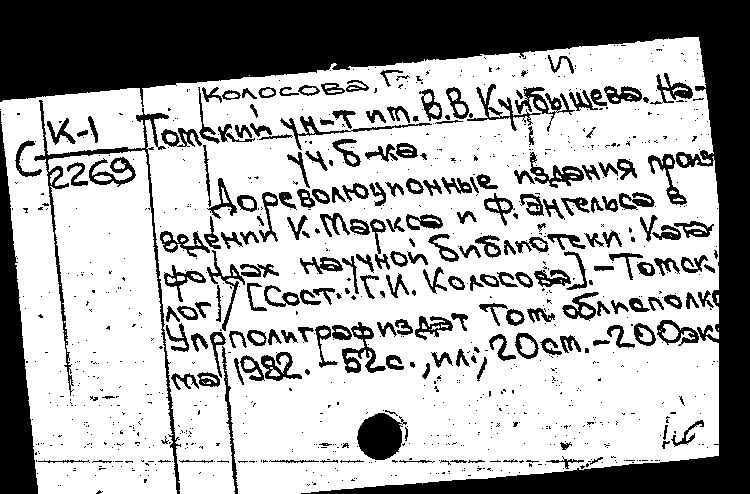 Колосова, Г. И
К-1 Томский ун-т им. В.В. Куйбышева. На-
С
2269 уч. б-ка.
Дореволюционные издания произ-
ведений К. Маркса и Ф. Энгельса в
фондах научной библиотеки: Ката-
лог / [Сост.: Г.И. Колосова]. - Томск:
Упрполиграфиздат Том. облисполко-
ма 1982. - 52с., ил.; 20 см. - 200 экз